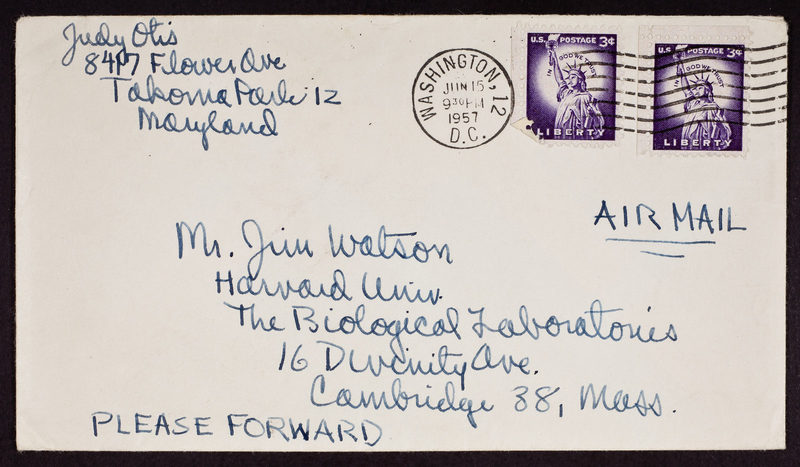 Judy Otis
8417 Flower Ave
Takoma Park 12
Maryland
WASHINGTON, 12
JUN 15
930 PM
1957
D.C.
U.S. POSTAGE 3¢
IN GOD WE TRUST
LIBERTY
U.S. POSTAGE 3¢
IN GOD WE TRUST
LIBERTY
AIR MAIL
Mr. Jim Watson
Harvard Univ.
The Biological Laboratories
16 Divinity Ave.
Cambridge 38, Mass.
PLEASE FORWARD